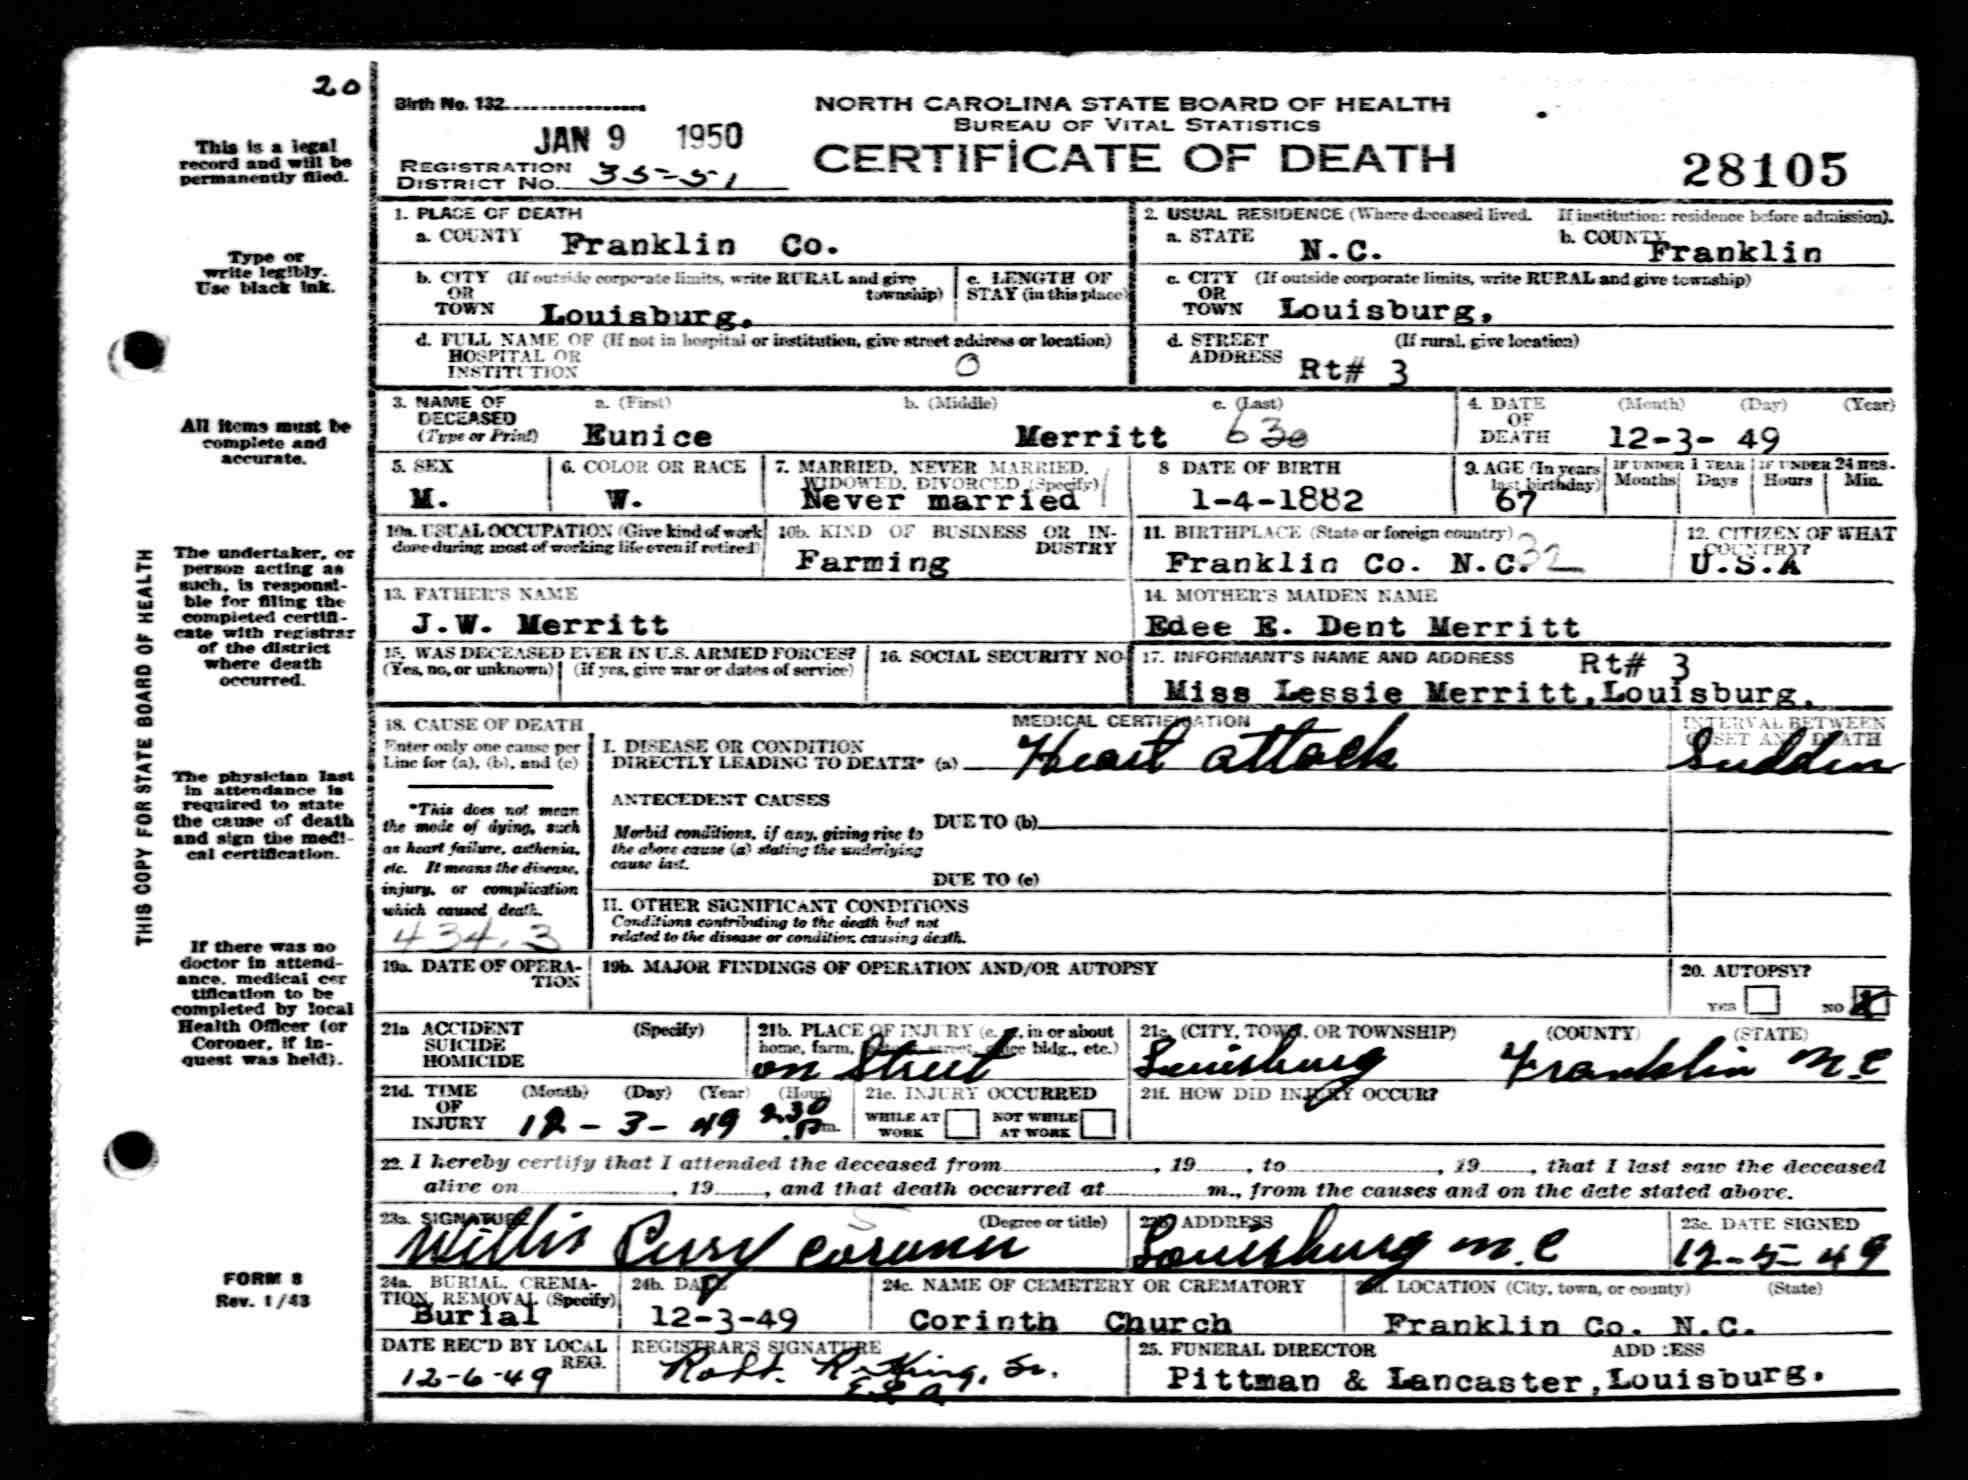 20
This is a legal
record and will be
permanently filed.
Type or
write legibly.
Use black ink.
All items must be
complete and
accurate.
The undertaker, or
person acting as
such, is responsi-
ble for filing the
completed certifi-
cate with registrar
of the district
where death
occurred.
The physician last
in attendance is
required to state
the cause of death
and sign the medi-
cal certification.
If there was no
doctor in attend-
ance, medical cer
tification to be
completed by local
Health Officer (or
Coroner, if in-
quest was held).
FORM 8
Rev. 1/43
THIS COPY FOR STATE BOARD OF HEALTH
Birth No. 132
JAN 9 1950
REGISTRATION
DISTRICT NO. 35-51
NORTH CAROLINA STATE BOARD OF HEALTH
BUREAU OF VITAL STATISTICS
CERTIFICATE OF DEATH
28105
1. PLACE OF DEATH
a. COUNTY Franklin Co.
2. USUAL RESIDENCE (Where deceased lived. If institution: residence before admission).
a. STATE N.C. b. COUNTY Franklin
b. CITY (If outside corporate limits, write RURAL and give township)
OR
TOWN Louisburg,
c. LENGTH OF
STAY (in this place)
c. CITY (If outside corporate limits, write RURAL and give township)
OR
TOWN Louisburg,
d. FULL NAME OF (If not in hospital or institution, give street address or location)
HOSPITAL OR
INSTITUTION 0
d. STREET (If rural, give location)
ADDRESS Rt# 3
3. NAME OF a. (First) b. (Middle) c. (Last)
DECEASED
(Type or Print) Eunice Merritt 630
4. DATE (Month) (Day) (Year)
OF
DEATH 12-3- 49
5. SEX
M.
6. COLOR OR RACE
W.
7. MARRIED, NEVER MARRIED,
WIDOWED, DIVORCED (Specify)
Never married
8 DATE OF BIRTH
1-4-1882
9. AGE (In years
last birthday)
67
IF UNDER 1 YEAR
Months Days
IF UNDER 24 HRS.
Hours Min.
10a. USUAL OCCUPATION (Give kind of work
done during most of working life even if retired)
10b. KIND OF BUSINESS OR IN-
DUSTRY
Farming
11. BIRTHPLACE (State or foreign country)
Franklin Co. N.C. 32
12. CITIZEN OF WHAT
COUNTRY?
U.S.A
13. FATHER'S NAME
J.W. Merritt
14. MOTHER'S MAIDEN NAME
Edee E. Dent Merritt
15. WAS DECEASED EVER IN U.S. ARMED FORCES?
(Yes, no, or unknown) (If yes, give war or dates of service)
16. SOCIAL SECURITY NO
17. INFORMANT'S NAME AND ADDRESS Rt# 3
Miss Lessie Merritt, Louisburg,
18. CAUSE OF DEATH
Enter only one cause per
Line for (a), (b), and (c)
*This does not mean
the mode of dying, such
as heart failure, asthenia,
etc. It means the disease,
injury, or complication
which caused death.
434.3
MEDICAL CERTIFICATION
I. DISEASE OR CONDITION
DIRECTLY LEADING TO DEATH* (a) Heart attack
INTERVAL BETWEEN
ONSET AND DEATH
Sudden
ANTECEDENT CAUSES
Morbid conditions, if any, giving rise to
the above cause (a) stating the underlying
cause last.
DUE TO (b)
DUE TO (c)
II. OTHER SIGNIFICANT CONDITIONS
Conditions contributing to the death but not
related to the disease or condition causing death.
19a. DATE OF OPERA-
TION
19b. MAJOR FINDINGS OF OPERATION AND/OR AUTOPSY
20. AUTOPSY?
YES NO X
21a ACCIDENT (Specify)
SUICIDE
HOMICIDE
21b. PLACE OF INJURY (e. g., in or about
home, farm, factory, street, office bldg., etc.)
on Street
21c. (CITY, TOWN, OR TOWNSHIP) (COUNTY) (STATE)
Louisburg Franklin N.C
21d. TIME (Month) (Day) (Year) (Hour)
OF
INJURY 12-3-49 2:30 Pm.
21e. INJURY OCCURRED
WHILE AT
WORK
NOT WHILE
AT WORK
21f. HOW DID INJURY OCCUR?
22. I hereby certify that I attended the deceased from , 19 , to , 19 , that I last saw the deceased
alive on , 19 , and that death occurred at m., from the causes and on the date stated above.
23a. SIGNATURE (Degree or title)
Willis Perry coroner
23b. ADDRESS
Louisburg N.C
23c. DATE SIGNED
12-5-49
24a. BURIAL, CREMA-
TION, REMOVAL (Specify)
Burial
24b. DATE
12-3-49
24c. NAME OF CEMETERY OR CREMATORY
Corinth Church
24d. LOCATION (City, town, or county) (State)
Franklin Co. N.C.
DATE REC'D BY LOCAL
REG.
12-6-49
REGISTRAR'S SIGNATURE
Robt. R. King, Sr.
25. FUNERAL DIRECTOR ADDRESS
Pittman & Lancaster, Louisburg.